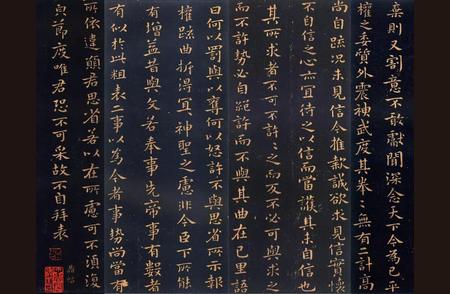 棄則又割意不敢獻聞深念天下今為已平
權之委質外震神武度其拳〻無有二計高
尚自疏況未見信今推款誠欲求見信實懷
不自信之心亦宜待之以信而當護其未自信也
其所求者不可不許〻之而反不必可與求之
而不許勢必自絕許而不與其曲在己里語
曰何以罰與以奪何以怒許不與思省所示報
權疏曲折得宜神聖之慮非今臣下所能
有增益昔與文若奉事先帝事有數者
有似於此粗表二事以為今者事勢尚當有
所依違願君思省若以在所慮可不須復
白節度唯君恐不可采故不自拜表